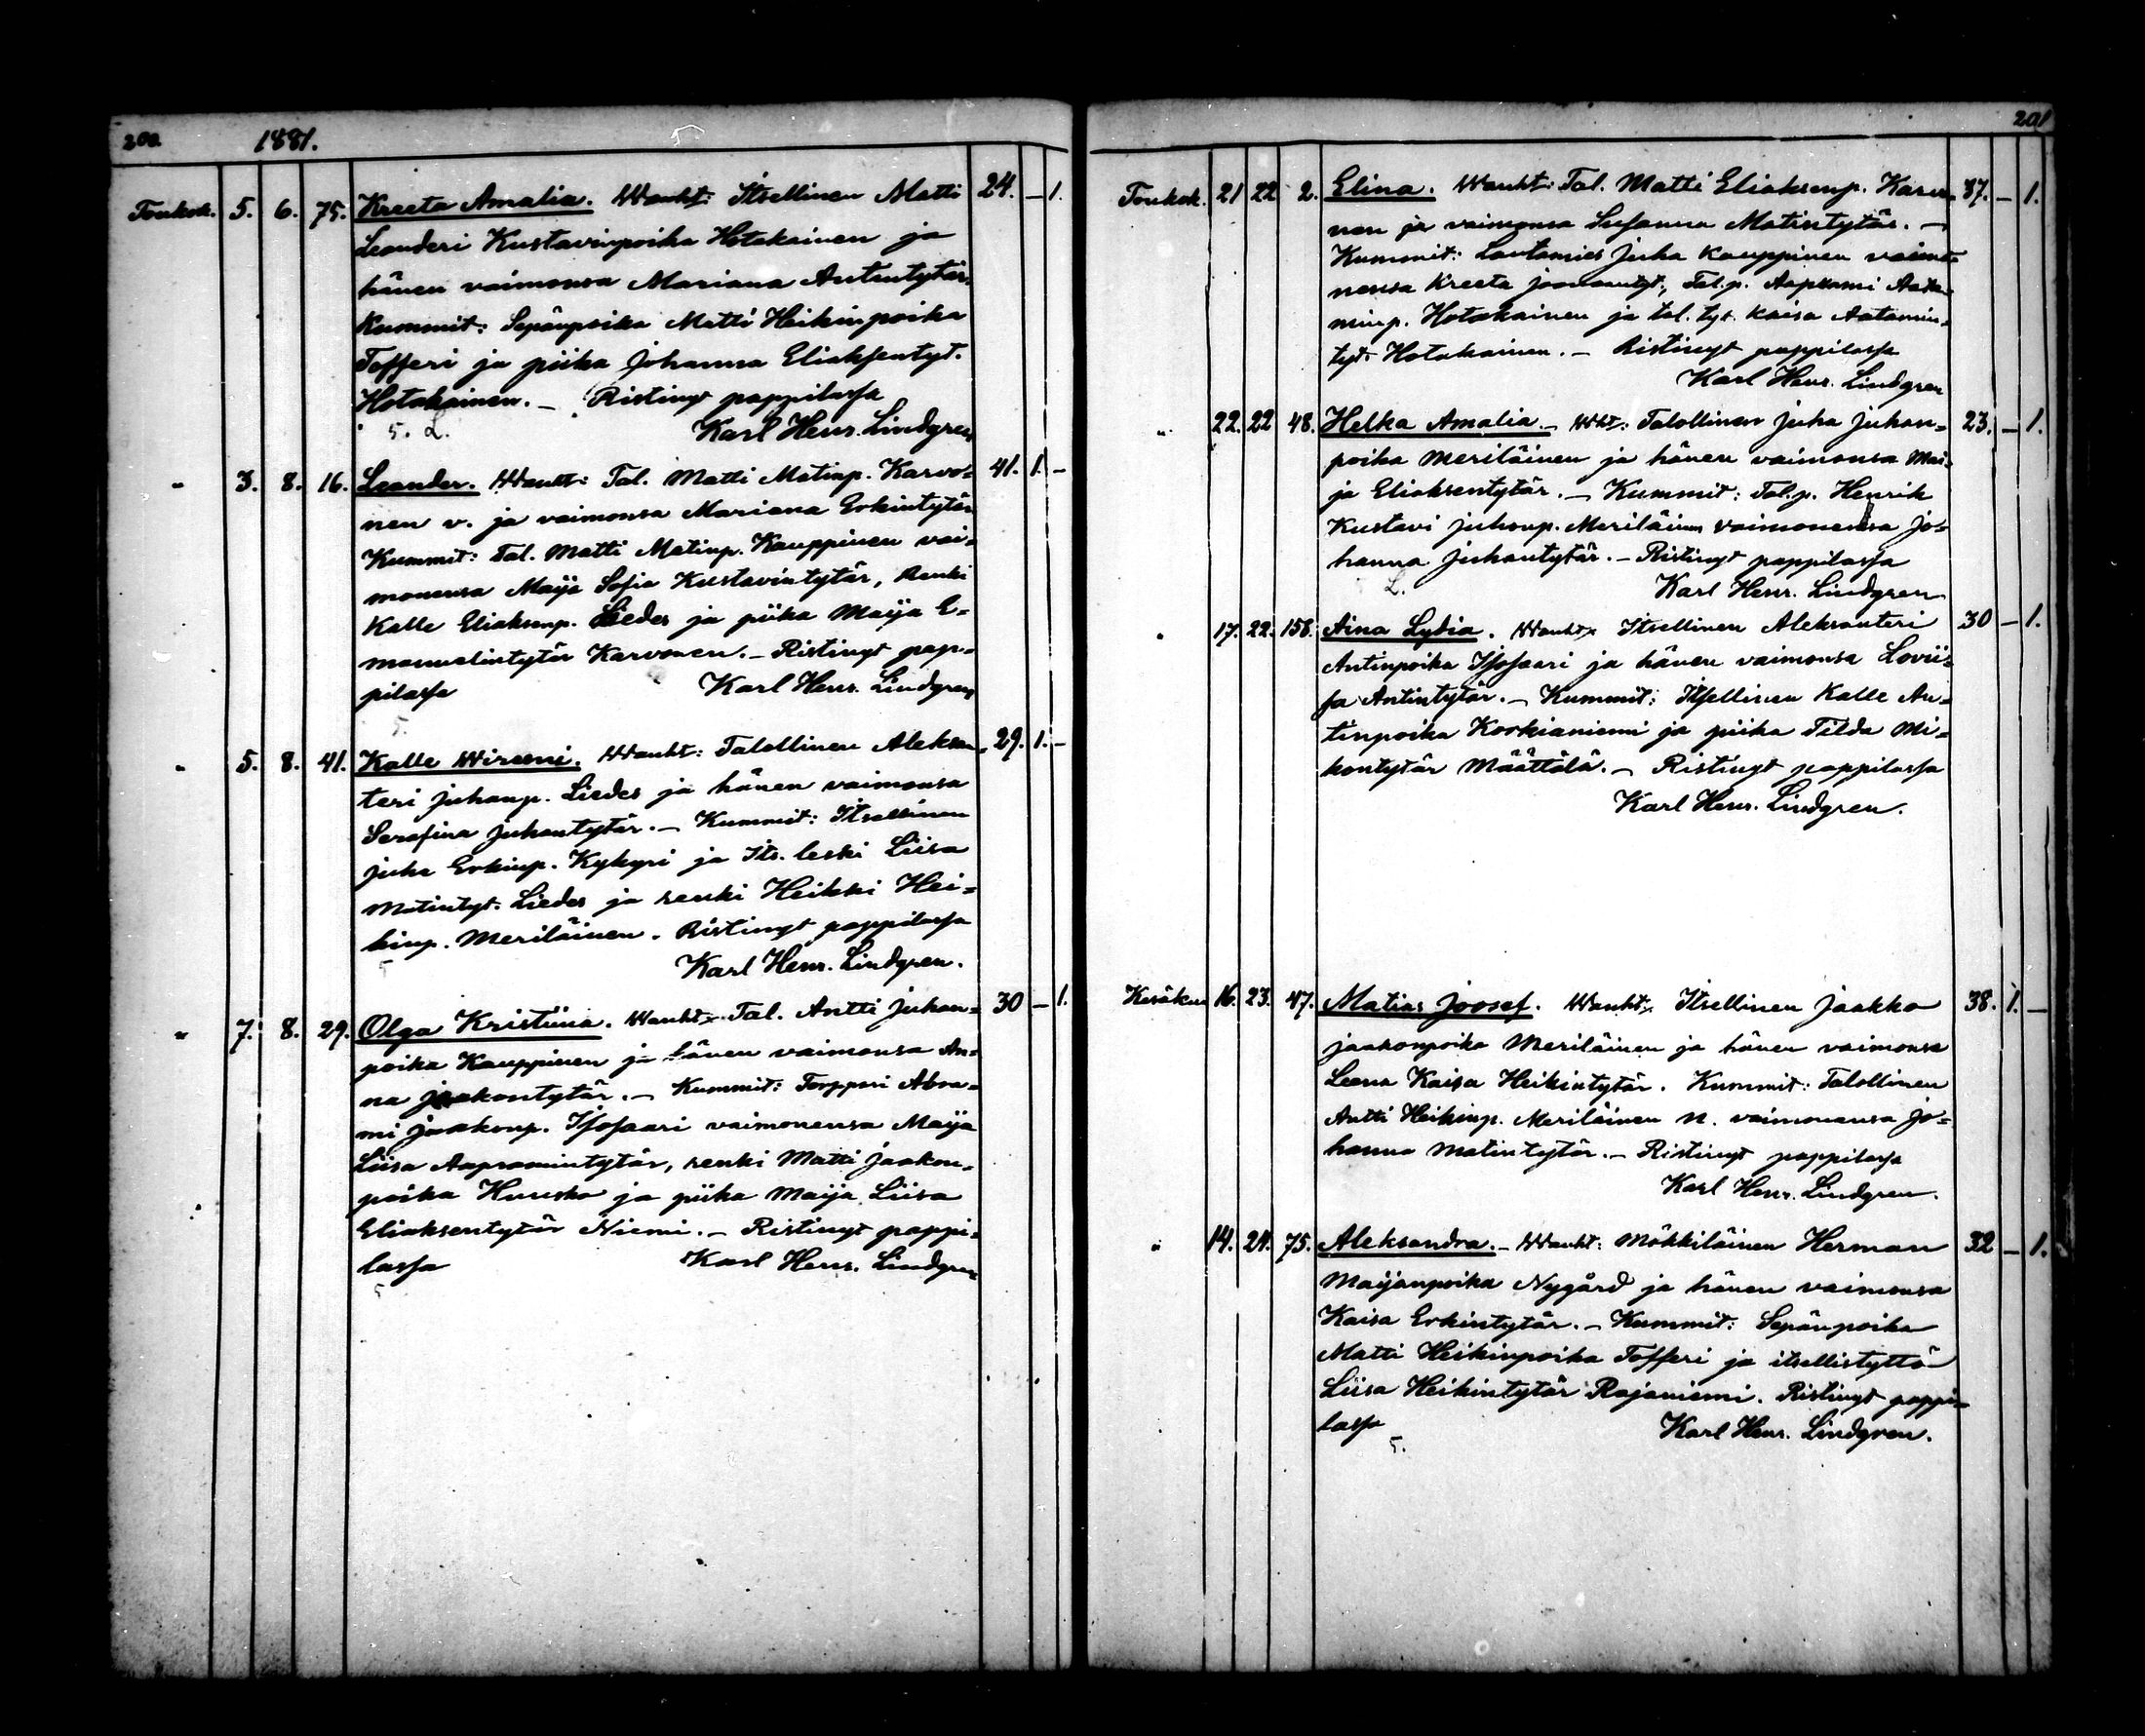 200. 1881.
Toukok. 5. 6. 75. Kreeta Amalia. Wanht: Itsellinen Matti 24. – 1.
Leanderi Kustavinpoika Hotakainen ja
hänen vaimonsa Mariana Antintytär.
Kummit: Sepänpoika Matti Heikinpoika
Tofferi ja piika Johanna Eliaksentyt.
Hotakainen. – Ristinyt pappilassa
5. L. Karl Henr. Lindgren
" 3. 8. 16. Leander. Wanht: Tal. Matti Matinp. Karvo= 41. 1. –
nen v. ja vaimonsa Mariana Erkintytär
Kummit: Tal. Matti Matinp. Kauppinen vai=
monensa Maija Sofia Kustavintytär, Renki
Kalle Eliaksenp. Liedes ja piika Maija E=
manuelintytär Karvonen. – Ristinyt pap=
pilassa Karl Henr. Lindgren
5.
" 5. 8. 41. Kalle Wirseeni. Wanht: Talollinen Aleksan= 29. 1. –
teri Juhanp. Liedes ja hänen vaimonsa
Serafina Juhantytär. – Kummit: Itsellinen
Juha Erkinp. Kykyri ja Its. leski Liisa
Matintyt. Liedes ja renki Heikki Hei=
kinp. Meriläinen. Ristinyt pappilassa
5 Karl Henr. Lindgren.
" 7. 8. 29. Olga Kristiina. Wanht: Tal. Antti Juhan= 30 – 1.
poika Kauppinen ja hänen vaimonsa An=
na Jaakontytär. – Kummit: Torppari Abra=
mi Jaakonp. Isosaari vaimonensa Maija
Liisa Aapramintytär, renki Matti Jaakon=
poika Huusko ja piika Maija Liisa
Eliaksentytär Niemi. – Ristinyt pappi=
lassa Karl Henr. Lindgren
5
201
Toukok. 21 22 2. Elina. Wanht: Tal. Matti Eliaksenp. Karvo= 37. – 1.
nen ja vaimonsa Susanna Matintytär. –
Kummit: Lautamies Juha Kauppinen vaimo=
nensa Kreeta Joonantyt., Tal.p. Aaprami Aata=
minp. Hotakainen ja tal. tyt. Kaisa Aatamin=
tyt. Hotakainen. – Ristinyt pappilassa
Karl Henr. Lindgren
" 22. 22 48. Helka Amalia. – Wht: Talollinen Juha Juhan= 23. – 1.
poika Meriläinen ja hänen vaimonsa Mai=
ja Eliaksentytär. – Kummit: Tal.p. Henrik
Kustavi Juhanp. Meriläinen vaimonensa Jo=
hanna Juhantytär. – Ristinyt pappilassa
L. Karl Henr. Lindgren
" 17. 22. 158. Aina Lydia. Wanht: Itsellinen Aleksanteri 30 – 1.
Antinpoika Isosaari ja hänen vaimonsa Lovii=
sa Antintytär. – Kummit: Itsellinen Kalle An=
tinpoika Korkianiemi ja piika Tilda Mi=
kontytär Määttälä. – Ristinyt pappilassa
Karl Henr. Lindgren.
Kesäkuu 16. 23. 47. Matias Joosef. Wanht: Itsellinen Jaakko 38. 1. –
Jaakonpoika Meriläinen ja hänen vaimonsa
Leena Kaisa Heikintytär. Kummit: Talollinen
Antti Heikinp. Meriläinen n. vaimonensa Jo=
hanna Matintytär. – Ristinyt pappilassa
Karl Henr. Lindgren.
" 14. 24. 75. Aleksandra. – Wanht: Mökkiläinen Herman 32 – 1.
Maijanpoika Nygård ja hänen vaimonsa
Kaisa Erkintytär. – Kummit: Sepänpoika
Matti Heikinpoika Tofferi ja itsellistyttö
Liisa Heikintytär Rajaniemi. Ristinyt pappi=
lassa Karl Henr. Lindgren.
5.